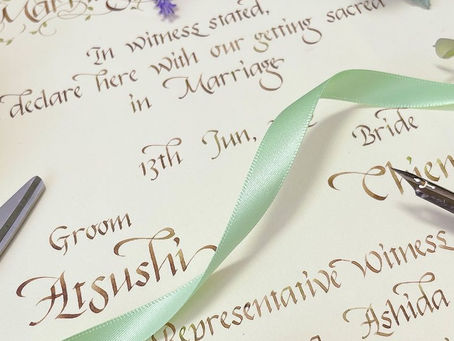 In Witness stated,
declare here With our getting sacred
in Marriage
13th Jun,
Bride
Chien
Groom
Atsushi
Representative Witness
Ashida